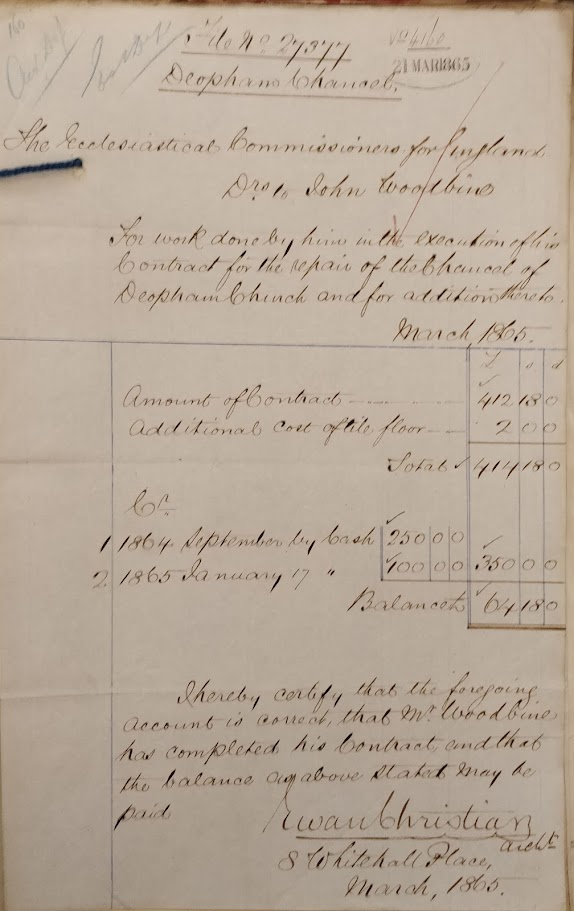 160
File No. 27377
No 4160
21 MAR 1865
Deopham Chancel.
The Ecclesiastical Commissioners for England
Drs to John Woodbine
For work done by him in the execution of his
Contract for the repair of the Chancel of
Deopham Church and for addition thereto.
March, 1865.
£ s d
Amount of Contract 412 18 0
Additional cost of tile floor 2 0 0
Total 414 18 0
Cr.
1 1864 September by Cash 250 0 0
2 1865 January 17 " 100 0 0 350 0 0
Balance £ 64 18 0
I hereby certify that the foregoing
account is correct, that Mr. Woodbine
has completed his Contract, and that
the balance as above stated may be
paid
Ewan Christian
Archt.
8 Whitehall Place,
March, 1865.